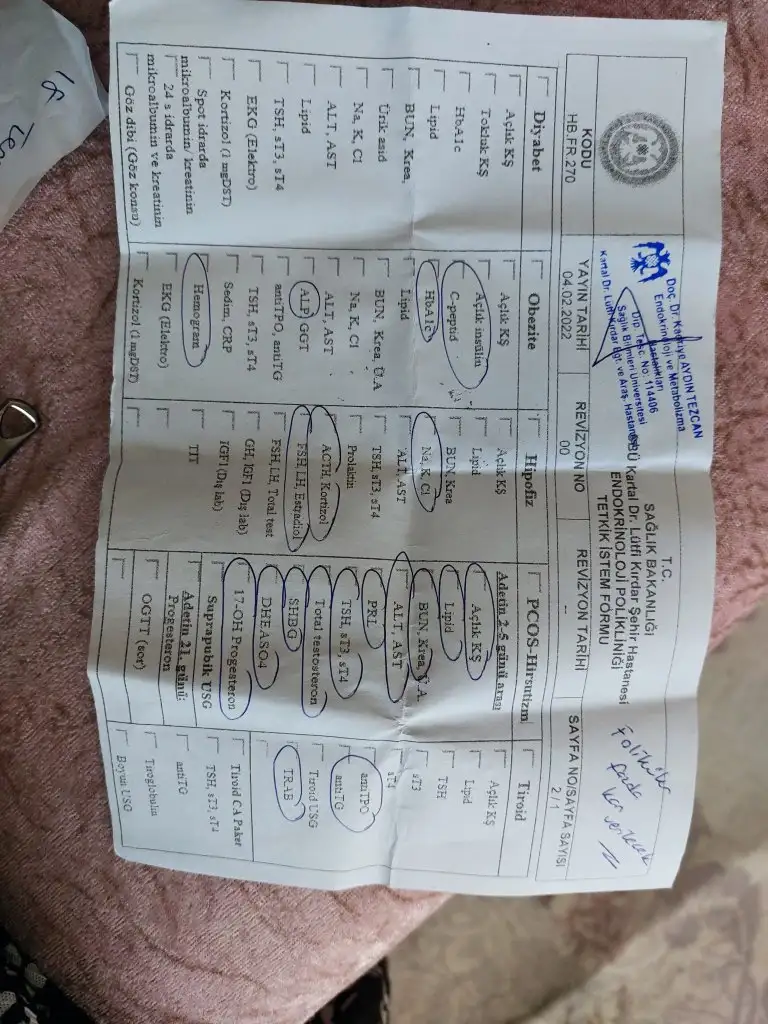 KODU
HB.FR.270
Doç. Dr. Kadriye AYDIN TEZCAN
Endokrinoloji ve Metabolizma
Hastalıkları
Dip. Tesc. No: 114406
Sağlık Bilimleri Üniversitesi
Kartal Dr. Lütfi Kırdar Eğt. ve Araş. Hastanesi
T.C.
SAĞLIK BAKANLIĞI
SBÜ Kartal Dr. Lütfi Kırdar Şehir Hastanesi
ENDOKRİNOLOJİ POLİKLİNİĞİ
TETKİK İSTEM FORMU
Foliküler
fazda
kan verilecek
YAYIN TARİHİ
04.02.2022
REVİZYON NO
00
REVİZYON TARİHİ
--
SAYFA NO/SAYFA SAYISI
2 / 1
Diyabet
Açlık KŞ
Tokluk KŞ
HbA1c
Lipid
BUN, Krea,
Ürik asid
Na, K, Cl
ALT, AST
Lipid
TSH, sT3, sT4
EKG (Elektro)
Kortizol (1 mgDST)
Spot idrarda
mikroalbumin/ kreatinin
24 s idrarda
mikroalbumin ve kreatinin
Göz dibi (Göz konsu)
Obezite
Açlık KŞ
Açlık insülin
C-peptid
HbA1c
Lipid
BUN, Krea, Ü.A
Na, K, Cl
ALT, AST
ALP, GGT
antiTPO, antiTG
TSH, sT3, sT4
Sedim, CRP
Hemogram
EKG (Elektro)
Kortizol (1 mgDST)
Hipofiz
Açlık KŞ
Lipid
BUN, Krea
Na, K, Cl
ALT, AST
TSH, sT3, sT4
Prolaktin
ACTH, Kortizol
FSH, LH, Estradiol
FSH, LH, Total test
GH, IGF1 (Dış lab)
IGF1 (Dış lab)
TİT
PCOS-Hirsutizm
Adetin 2-5 günü arası
Açlık KŞ
Lipid
BUN, Krea, Ü.A
ALT, AST
PRL
TSH, sT3, sT4
Total testosteron
SHBG
DHEASO4
17-OH Progesteron
Suprapubik USG
Adetin 21. günü:
Progesteron
OGTT (sor)
Tiroid
Açlık KŞ
Lipid
TSH
sT3
sT4
antiTPO
antiTG
Tiroid USG
TRAB
Tiroid CA Paket
TSH, sT3, sT4
antiTG
Tiroglobulin
Boyun USG